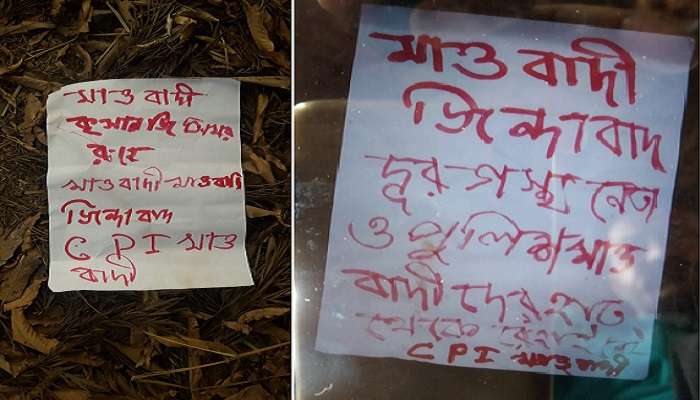 মাও বাদী
কৃষানজি অমর
রহে
মাওবাদী মাওবাদী
জিন্দাবাদ
CPI মাও
বাদী
মাও বাদী
জিন্দাবাদ
দূর্নগ্রস্থ নেতা
ও পুলিশ মাও
বাদী দের হাত
থেকে রেহাই নেই
CPI মাওবাদী